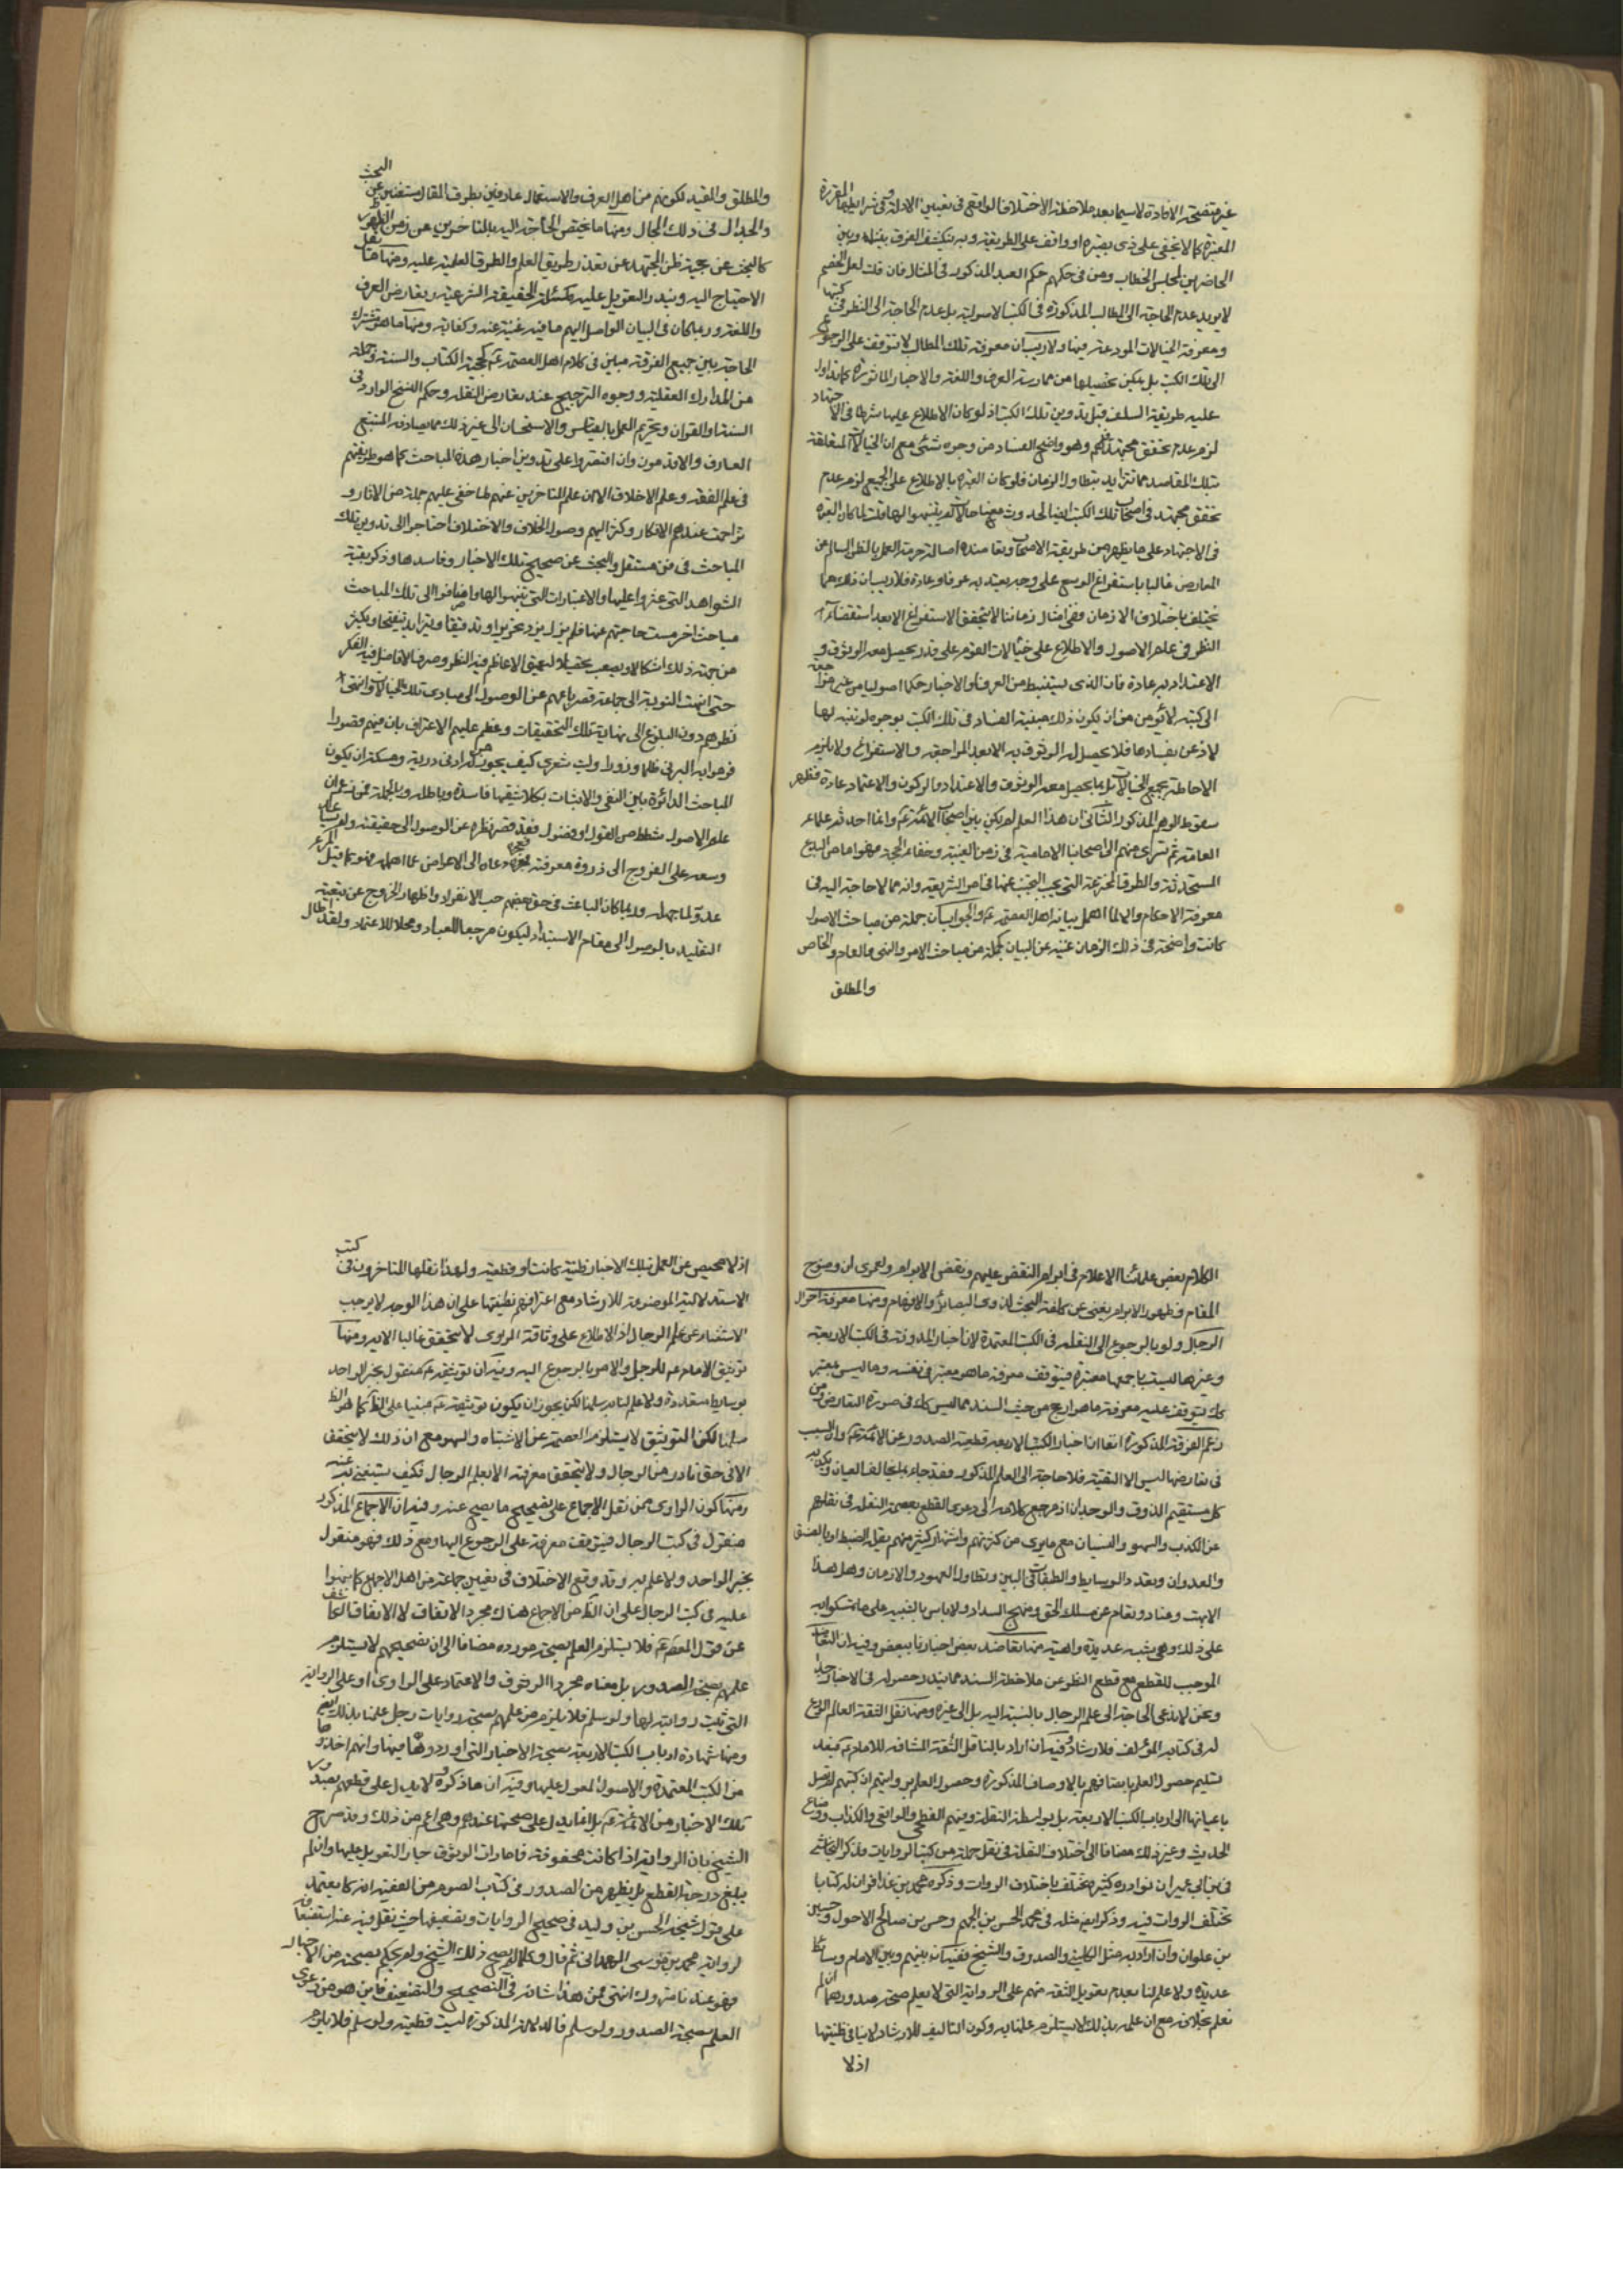 غير متضحة الافادة لاسيما بعد ملاحظة الاختلاف الواقع فى تعيين الادلة وفى شرايطها المقررة
المعتبرة كما لا يخفى على ذى بصيرة او واقف على الطريقة وبه ينكشف الفرق بيننا وبين
الحاضرين لمجلس الخطاب ومن فى حكمهم حكم العبد المذكور فى المثال فان قلت لعل الخصم
لا يريد عدم الحاجة الى المطالب المذكورة فى الكتب الاصولية بل عدم الحاجة الى النظر فى كتبها
ومعرفة الخيالات المودعة فيها ولا ريب ان معرفة تلك المطالب لا تتوقف على الرجوع
الى تلك الكتب بل يمكن تحصيلها من ممارسة العرف واللغة والاخبار الماثورة كما تداول
عليه طريقة السلف قبل تدوين تلك الكتب اذ لو كان الاطلاع عليها شرطا فى الاجتهاد
لزم عدم تحقق مجتهد قبلهم وهو واضح الفساد من وجوه شتى مع ان الخيالات المتعلقة
بتلك المقاصد مما تتزايد بتطاول الزمان فلو كان العبرة بالاطلاع على الجميع لزم عدم
تحقق مجتهد فى اصحاب تلك الكتب ايضا لحدوث بعض خيالات لم يتنبهوا لها قلت لما كان العبرة
فى الاجتهاد على ما يظهر من طريقة الاصحاب وتعاضده اصالة حرمة العمل بالظن السالم عن
المعارض غالبا باستفراغ الوسع على وجه يعتد به عرفا وعادة فلا ريب ان ذلك مما
يختلف باختلاف الازمان ففى امثال زماننا لا يتحقق الاستفراغ الا بعد استقصاء
النظر فى علم الاصول والاطلاع على خيالات القوم على قدر يحصل معه الوثوق و
الاعتداد به عادة فان الذى يستنبط من العرف او الاخبار حكما اصوليا من غير مراجعة
الى كتبه لا يؤمن من ان يكون ذلك مبنية الفساد فى تلك الكتب بوجوه لو تنبه لها
لاذعن بفسادها فلا يحصل له الوثوق به الا بعد المراجعة والاستفراغ ولا يلزم
الاحاطة بجميع الخيالات بل بما يحصل معه الوثوق والاعتداد والركون والاعتماد عادة فظهر
سقوط الوهم المذكور الثانى ان هذا العلم لم يكن بين اصحاب الائمة ع وانما احدثه علماء
العامة ثم سرى منهم الى اصحابنا الامامية فى زمن الغيبة وخفاء الحجة فهو اما من البدع
المستحدثة والطرق المخترعة التى يجب التجنب عنها فى امر الشريعة وانه مما لا حاجة اليه فى
معرفة الاحكام والا لما اهمل بيانه اهل العصمة ع والجواب ان جملة من مباحث الاصول
كانت واضحة فى ذلك الزمان غنية عن البيان كجملة من مباحث الامر والنهى والعام والخاص
والمطلق
والمطلق والمقيد لكونهم من اهل العرف والاستعمال عارفين بطرق المقال مستغنين عن البحث
والجدال فى ذلك المجال ومنها ما يختص الحاجة اليه بالمتاخرين عن زمن الظهور
كالبحث عن حجية ظن المجتهد عن تعذر طريق العلم والطرق العلمية عليه ومنها ما يقل
الاحتياج اليه ويندر التعويل عليه كمسئلة الحقيقة الشرعية وتعارض العرف
واللغة وربما كان فى البيان الواصل اليهم ما فيه غنية عنه وكفاية ومنها ما هو مشترك
الحاجة بين جميع الفرقة مبين فى كلام اهل العصمة ع كحجية الكتاب والسنة وجملة
من المدارك العقلية ووجوه الترجيح عند تعارض النقلة وحكم النسخ الوارد فى
السنة او القران وتحريم العمل بالقياس والاستحسان الى غير ذلك مما يصادفه المتتبع
العارف والاقدمون وان افتقروا على تدوين اخبار هذه المباحث كما هو طريقتهم
فى علم الفقه وعلم الاخلاق الا ان علم المتاخرين عنهم لما خفى عليهم جملة من الاثار و
تزاحمت عندهم الافكار وكثر اليهم وصول الخلاف والاختلاف احتاجوا الى تدوين تلك
المباحث فى فن مستقل والبحث عن صحيح تلك الاخبار وفاسدها وذكر بقية
الشواهد التى عثروا عليها والاعتبارات التى تنبهوا لها واضافوا الى تلك المباحث
مباحث اخر مست حاجتهم عنها فلم يزل يزيد تحريرا وتدقيقا ويتزايد تنقيحا ويكثر
من جهة ذلك اشكالا ويصعب تحصيلا لتعميق الاعاظم فيه النظر وصرف الافاضل فيه الفكر
حتى انتهت النوبة الى جماعة قصر باعهم عن الوصول الى مبادى تلك الخيالات وانتهى
نظرهم دون البلوغ الى نهاية تلك التحقيقات وعظم عليهم الاعتراف بان فيهم قصورا
فرموا به البرئ ظلما وزورا وليت شعرى كيف يجوز من له ادنى درية ومسكة ان يكون
المباحث الدائرة بين النفى والاثبات بكلا شقيها فاسدة وباطلة وبالجملة فمن زعم ان
علم الاصول شطط من القول او فضول فقد قصر نظره عن الوصول الى حقيقته ولم يساعده
وسعه على العروج الى ذروة معرفته فعجزه دعاه الى الاعراض عما اهمله فهو كما قيل المرء
عدو لما جهله وربما كان الباعث فى حق بعضهم حب الانفراد واظهار الخروج عن تبعية
التقليد بالوصول الى مقام الاستبداد ليكون مرجعا للعباد ومحلا للاعتماد ولقد اطال
الكلام بعض علمائنا الاعلام فى ابرام النقض عليهم ونقض الابرام ولعمرى ان وضوح
المقام وظهور الابرام يغنى عن كلفة البحث لذوى البصائر والافهام ومنها معرفة احوال
الرجال ولو بالرجوع الى النقلة فى الكتب المعتمدة لان اخبار المدونة فى الكتب الاربعة
وغيرها ليست باجمعها معتبرة فيتوقف معرفة ما هو معتبر فى نفسه وما ليس بمعتبر
كك يتوقف عليه معرفة ما هو ارجح من حيث السند مما ليس كك فى صورة التعارض ومن
زعم الفرقة المذكورة انفا ان اخبار الكتب الاربعة قطعية الصدور عن الائمة ع وان السبب
فى تعارضها ليس الا التقية فلا حاجة الى العلم المذكور فقد جاء بما يخالف العيان ويكذبه
كل مستقيم الذوق والوجدان اذ مرجع كلامه الى دعوى القطع بعصمة النقلة فى نقلهم
عن الكذب والسهو والنسيان مع ما يرى من كثرتهم واشتهار كثير منهم بقلة الضبط او بالفسق
والعدوان وبعد الوسايط والطبقات فى البين وتطاول العهود والازمان وهل هذا
الا بهت وعناد وتعام عن مسلك الحق ومنهج السداد ولا باس بالتنبيه على ما تمسكوا به
على ذلك وهى شبه عديدة واهية منها تعاضد بعض اخبارنا ببعض وفيه ان التعاضد
الموجب للقطع مع قطع النظر عن ملاحظة السند مما يندر حصوله فى الاخبار جدا
ونحن لا ندعى الحاجة الى علم الرجال بالنسبة اليه بل الى غيره ومنها نقل الثقة العالم الورع
له فى كتابه المؤلف للارشاد وفيه ان اراد بالناقل الثقة المشافه للامام ع فبعد
تسليم حصول العلم باتصافهم بالاوصاف المذكورة وحصول العلم بروايتهم ان كتبهم لم تصل
باعيانها الى ارباب الكتب الاربعة بل بواسطة النقلة ومنهم الفطحى والواقفى والكذاب ووضاع
الحديث وغير ذلك مضافا الى اختلاف النقلة فى نقل جملة من كتب الروايات فذكر النجاشى
فى ابن ابى عمير ان نوادره كثيرة تختلف باختلاف الروات وذكر محمد بن عذافر ان له كتابا
تختلف الروات فيه وذكر ايضا مثله فى محمد الحسن بن الجهم وحسن بن صالح الاحول وحسين
بن علوان وان اراد به مثل الكلينى والصدوق والشيخ ففيه ان بينهم وبين الامام وسائط
عديدة ولا علم لنا بعدم تعويل الثقة منهم على الرواية التى لا يعلم صحة صدورها ان لم
نعلم بخلافه مع ان علمه بذلك لا يستلزم علمنا به وكون التاليف للارشاد لا ينافى ظنيتها
اذ لا
اذ لا محيص عن العمل بتلك الاخبار ظنية كانت او قطعية ولهذا نقلها المتاخرون فى كتب
الاستدلالية الموضوعة للارشاد مع اعترافهم بظنيتها على ان هذا الوجه لا يوجب
الاستغناء عن علم الرجال اذ الاطلاع على وثاقة المروى لا يتحقق غالبا الا به ومنها
توثيق الامام ع للرجل والامر بالرجوع اليه وفيه ان توثيقه ع منقول بخبر الواحد
بوسايط متعددة ولا علم لنا به سلمنا لكن يجوز ان يكون توثيقه ع مبنيا على الظاهر كما هو الظ
سلمنا لكن التوثيق لا يستلزم العصمة عن الاشتباه والسهو مع ان ذلك لا يتحقق
الا فى حق نادر من الرجال ولا يتحقق معرفته الا بعلم الرجال فكيف يستغنى به عنه
ومنها كون الراوى ممن نقل الاجماع على تصحيح ما يصح عنه وفيه ان الاجماع المذكور
منقول فى كتب الرجال فيتوقف معرفته على الرجوع اليها ومع ذلك فهو منقول
بخبر الواحد ولا علم به وقد وقع الاختلاف فى تعيين جماعة من اهل الاجماع كما نبهوا
عليه فى كتب الرجال على ان الظ من الاجماع هناك مجرد الاتفاق لا الاتفاق الكاشف
عن قول المعصوم ع فلا يستلزم العلم بصحة مورده مضافا الى ان تصحيحهم لا يستلزم
علمهم بصحة الصدور بل معناه مجرد الوثوق والاعتماد على الراوى او على الرواية
التى ثبت روايته لها ولو سلم فلا يلزم من علمهم بصحة روايات رجل علمنا بذلك ايضا
ومنها شهادة ارباب الكتب الاربعة بصحة الاخبار التى اوردوها فيها وانهم اخذوها
من الكتب المعتمدة والاصول المعول عليها وفيه ان ما ذكروه لا يدل على قطعهم بصدور
تلك الاخبار من الائمة ع بل انما يدل على صحتها عندهم وهى اعم من ذلك وقد صرح
الشيخ بان الرواية اذا كانت محفوفة بامارات الوثوق جاز التعويل عليها وان لم
يبلغ درجة القطع بل يظهر من الصدوق فى كتاب الصوم من الفقيه انه كان يعتمد
على قول شيخه الحسن بن وليد فى صحيح الروايات وتضعيفها حيث نقل فيه عنه استضعافه
لرواية محمد بن موسى الهمدانى ثم قال وكلما لم يصح ذلك الشيخ ولم يحكم بصحته من الاخبار
فهو عندنا متروك انتهى فمن هذا شانه فى التصحيح والتضعيف فاين هو من دعوى
العلم بصحة الصدور ولو سلم فالدلالة المذكورة ليست قطعية ولو سلم فلا يلزم